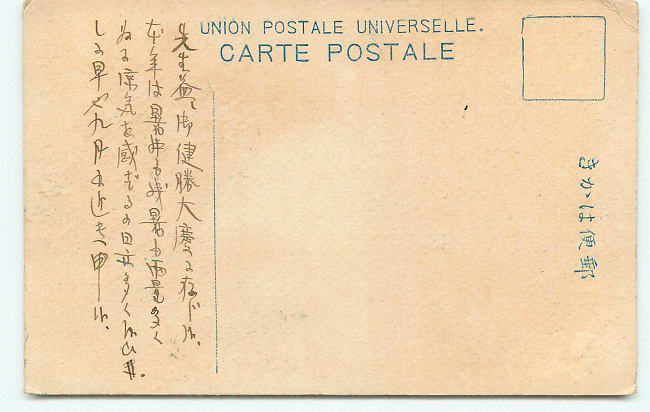 UNION POSTALE UNIVERSELLE.
CARTE POSTALE
きかは便郵
先生益々御健勝大慶に存じ候、
本年は暑中も残暑も雨量多く
為に涼気を感ずるの日 多く候
早や九月 近き 申候、